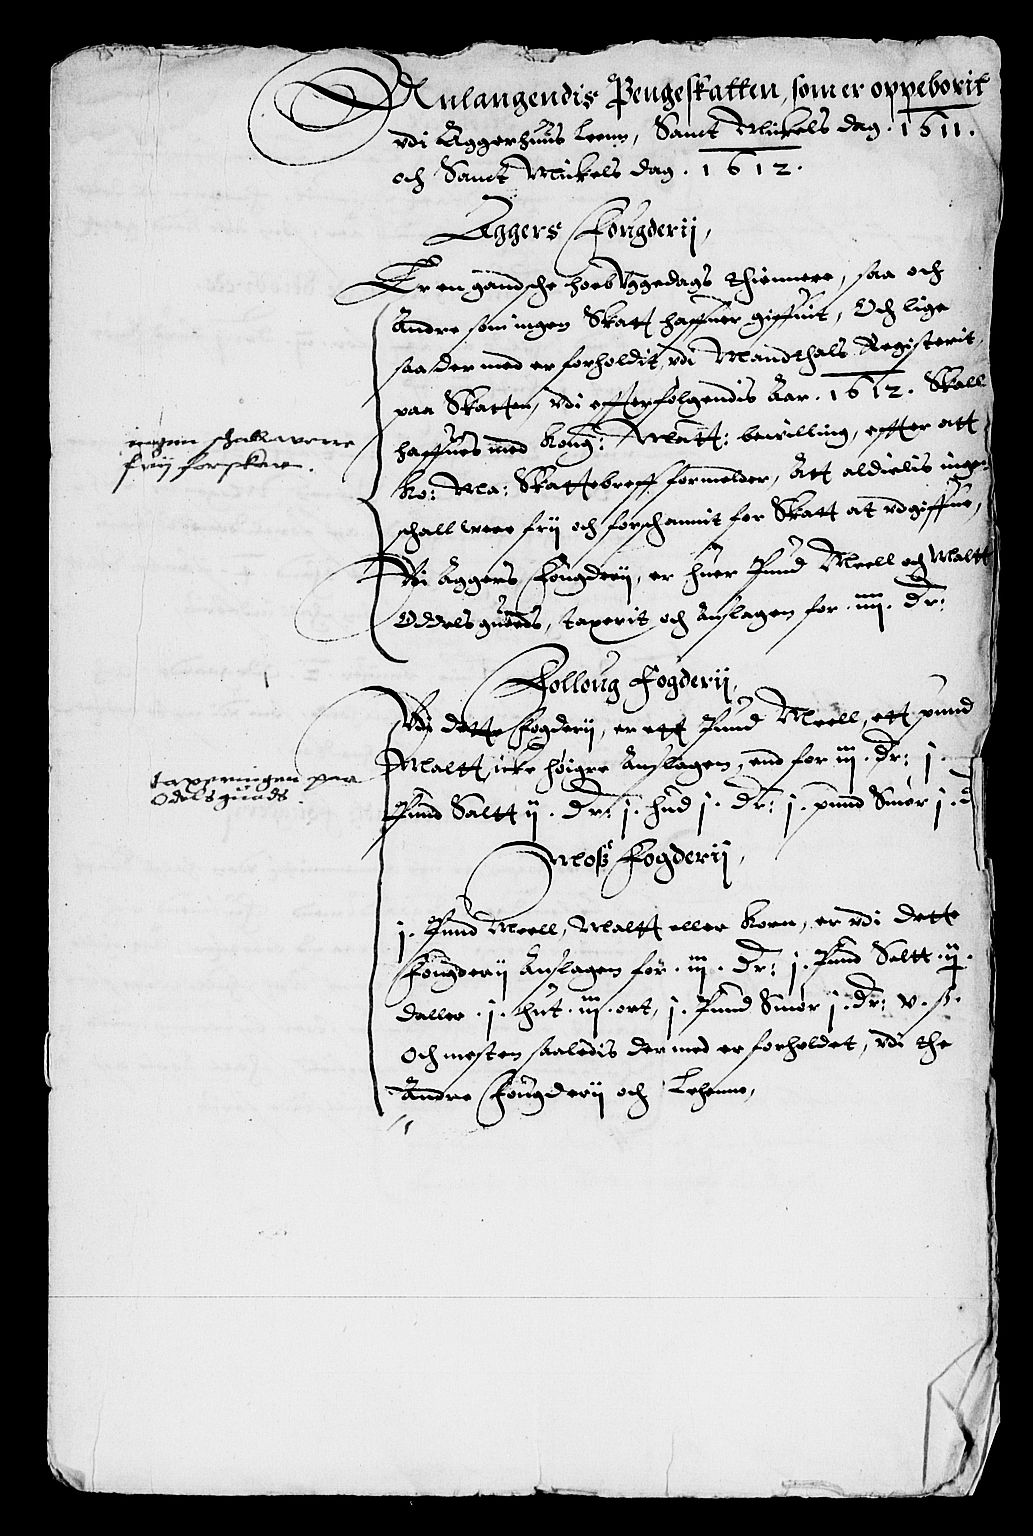 Anlangendis Pengeskatten, som er oppeborit
vdi Aggershuus Leenn, Sanct Mickels dag. 1611.
och Sanct Mickels dag. 1612.
Aggers Fougderij,
Er en gandsche hoeb Vggedags thiennere, saa och
Andre som ingen Skatt haffuer giffuit, Och lige
saa der med er forholdit, vdi Mandthals Registerit,
paa Skatten, vdi effterfolgendis Aar. 1612. Skall
haffues med Kong: Matt: beuilling, effter att
Ko: Ma: Skattebreff formelder, Att aldielis ingen
schall were frij och forschaanit for Skatt at vdgiffue,
ingen schall werre
frij for skatt.
Vdi Aggers Fougderij, er huer Pund Meell och Maltt
Oddels guods, taxerit och Anslagen for. iiij. Dr:
Folloug Fogderij,
Vdi dette Fogderij, er ett Pund Meell, ett pund
Maltt icke høigre Anslagen, end for iij. Dr: j.
Pund Saltt ij. Dr: j. hud j. Dr: j. pund Smør j. d
taxeringen paa
Odels guuds.
Moss Fogderij,
j. Pund Meell, Maltt eller Korn, er vdi dette
Fougderij Anslagen for. iij. Dr: j. Pund Saltt. ij.
daller. j. hut. iij. ort, j. Pund Smør j. Dr: v. ß.
Och mesten saaledis der med er forholdet, vdi the
Andre Fougderij och Lehenne,